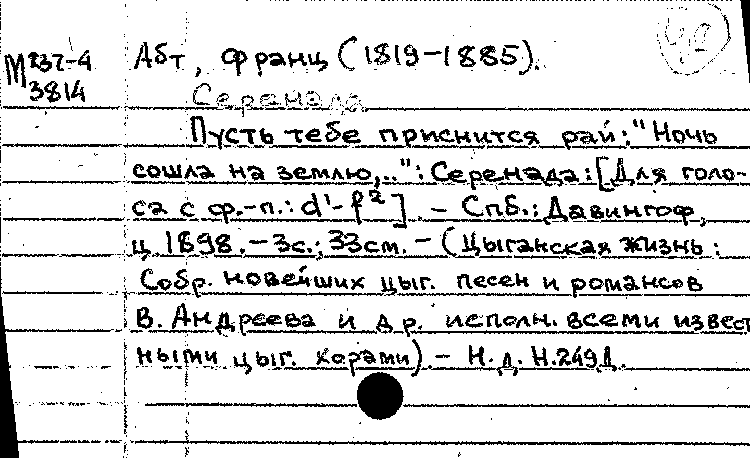 М 237-4 Абт, Франц (1819-1885).
3814
Серенада
Пусть тебе приснится рай: "Ночь
сошла на землю,..": Серенада: [Для голо-
са с ф.-п.: d¹-f²] . - Спб.: Давингоф,
ц. 1898. - 3с.; 33см. - (Цыганская жизнь:
Собр. новейших цыг. песен и романсов
В. Андреева и др. исполн. всеми извест
ными цыг. хорами). - Н.д. Н.249Д.